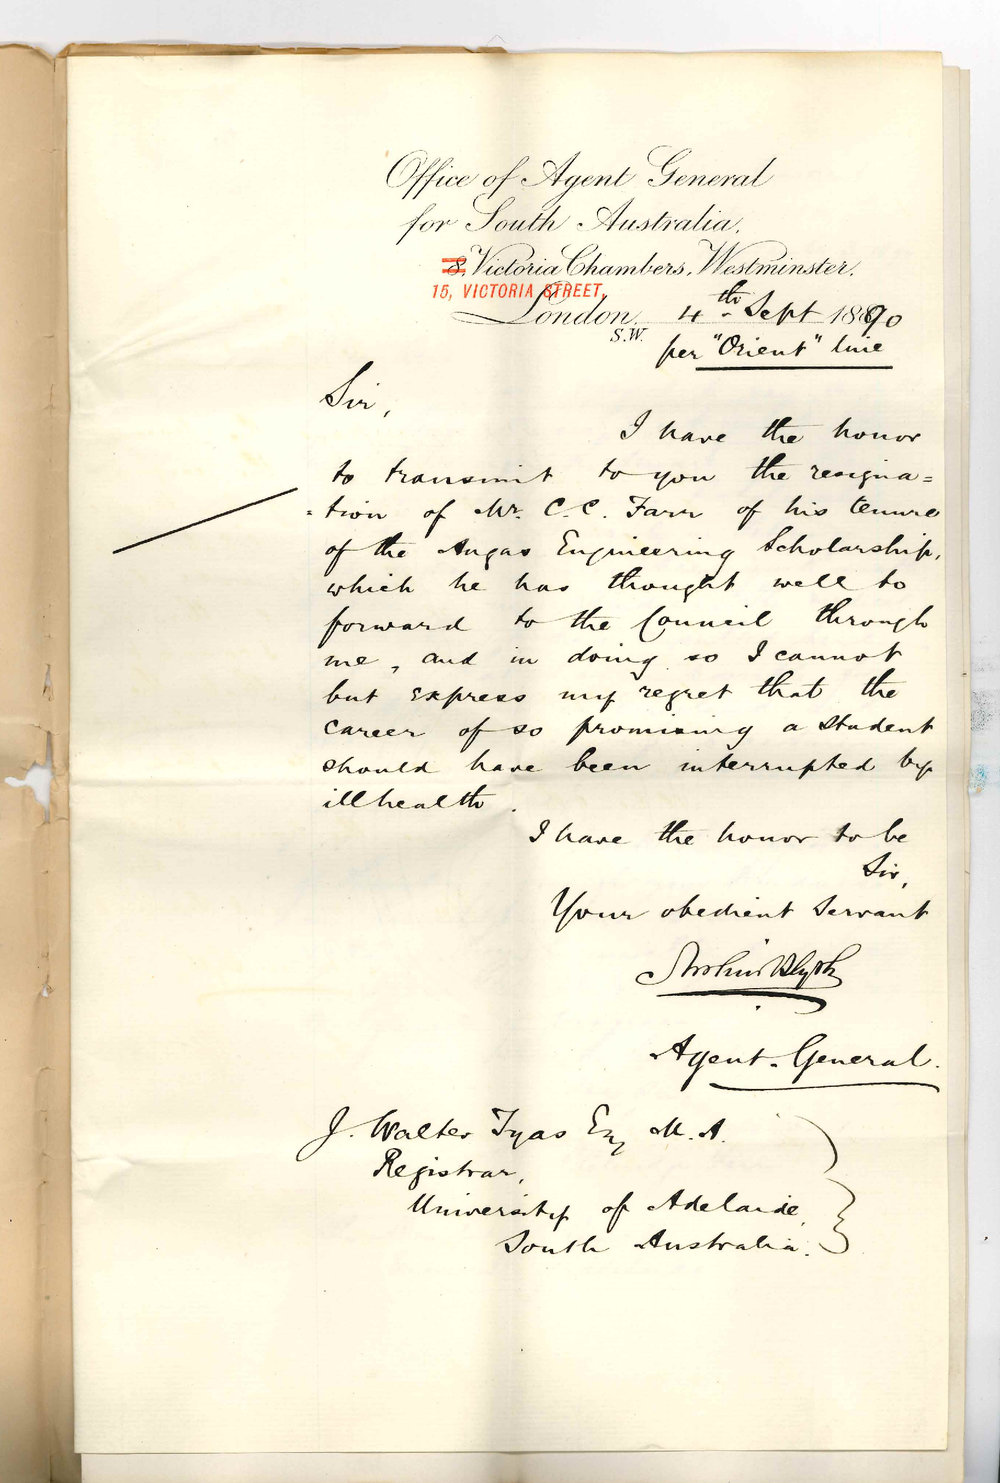 Office of Agent General
for South Australia.
8, Victoria Chambers, Westminster.
15, VICTORIA STREET,
London, 4th Sept 1890
S.W.
per "Orient" line
Sir,
I have the honor
to transmit to you the resigna=
=tion of Mr. C. C. Farr of his tenure
of the Angas Engineering Scholarship,
which he has thought well to
forward to the Council through
me, and in doing so I cannot
but express my regret that the
career of so promising a student
should have been interrupted by
ill health.
I have the honor to be
Sir,
Your obedient servant
Arthur Blyth
Agent-General.
J. Walter Tyas Esq M.A.
Registrar,
University of Adelaide,
South Australia.